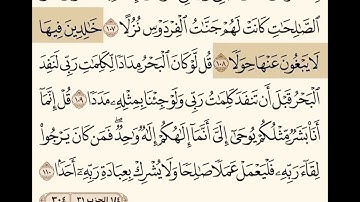 ٱلصَّٰلِحَٰتِ كَانَتْ لَهُمْ جَنَّٰتُ ٱلْفِرْدَوْسِ نُزُلًا ١٠٧ خَٰلِدِينَ فِيهَا
لَا يَبْغُونَ عَنْهَا حِوَلًا ١٠٨ قُل لَّوْ كَانَ ٱلْبَحْرُ مِدَادًا لِّكَلِمَٰتِ رَبِّي لَنَفِدَ
ٱلْبَحْرُ قَبْلَ أَن تَنفَدَ كَلِمَٰتُ رَبِّي وَلَوْ جِئْنَا بِمِثْلِهِۦ مَدَدًا ١٠٩ قُلْ إِنَّمَآ
أَنَا۠ بَشَرٌ مِّثْلُكُمْ يُوحَىٰٓ إِلَيَّ أَنَّمَآ إِلَٰهُكُمْ إِلَٰهٌ وَٰحِدٌ ۖ فَمَن كَانَ يَرْجُوا۟
لِقَآءَ رَبِّهِۦ فَلْيَعْمَلْ عَمَلًا صَٰلِحًا وَلَا يُشْرِكْ بِعِبَادَةِ رَبِّهِۦٓ أَحَدًۢا ١١٠
١/٤ الحزب ٣١ ٣٠٤